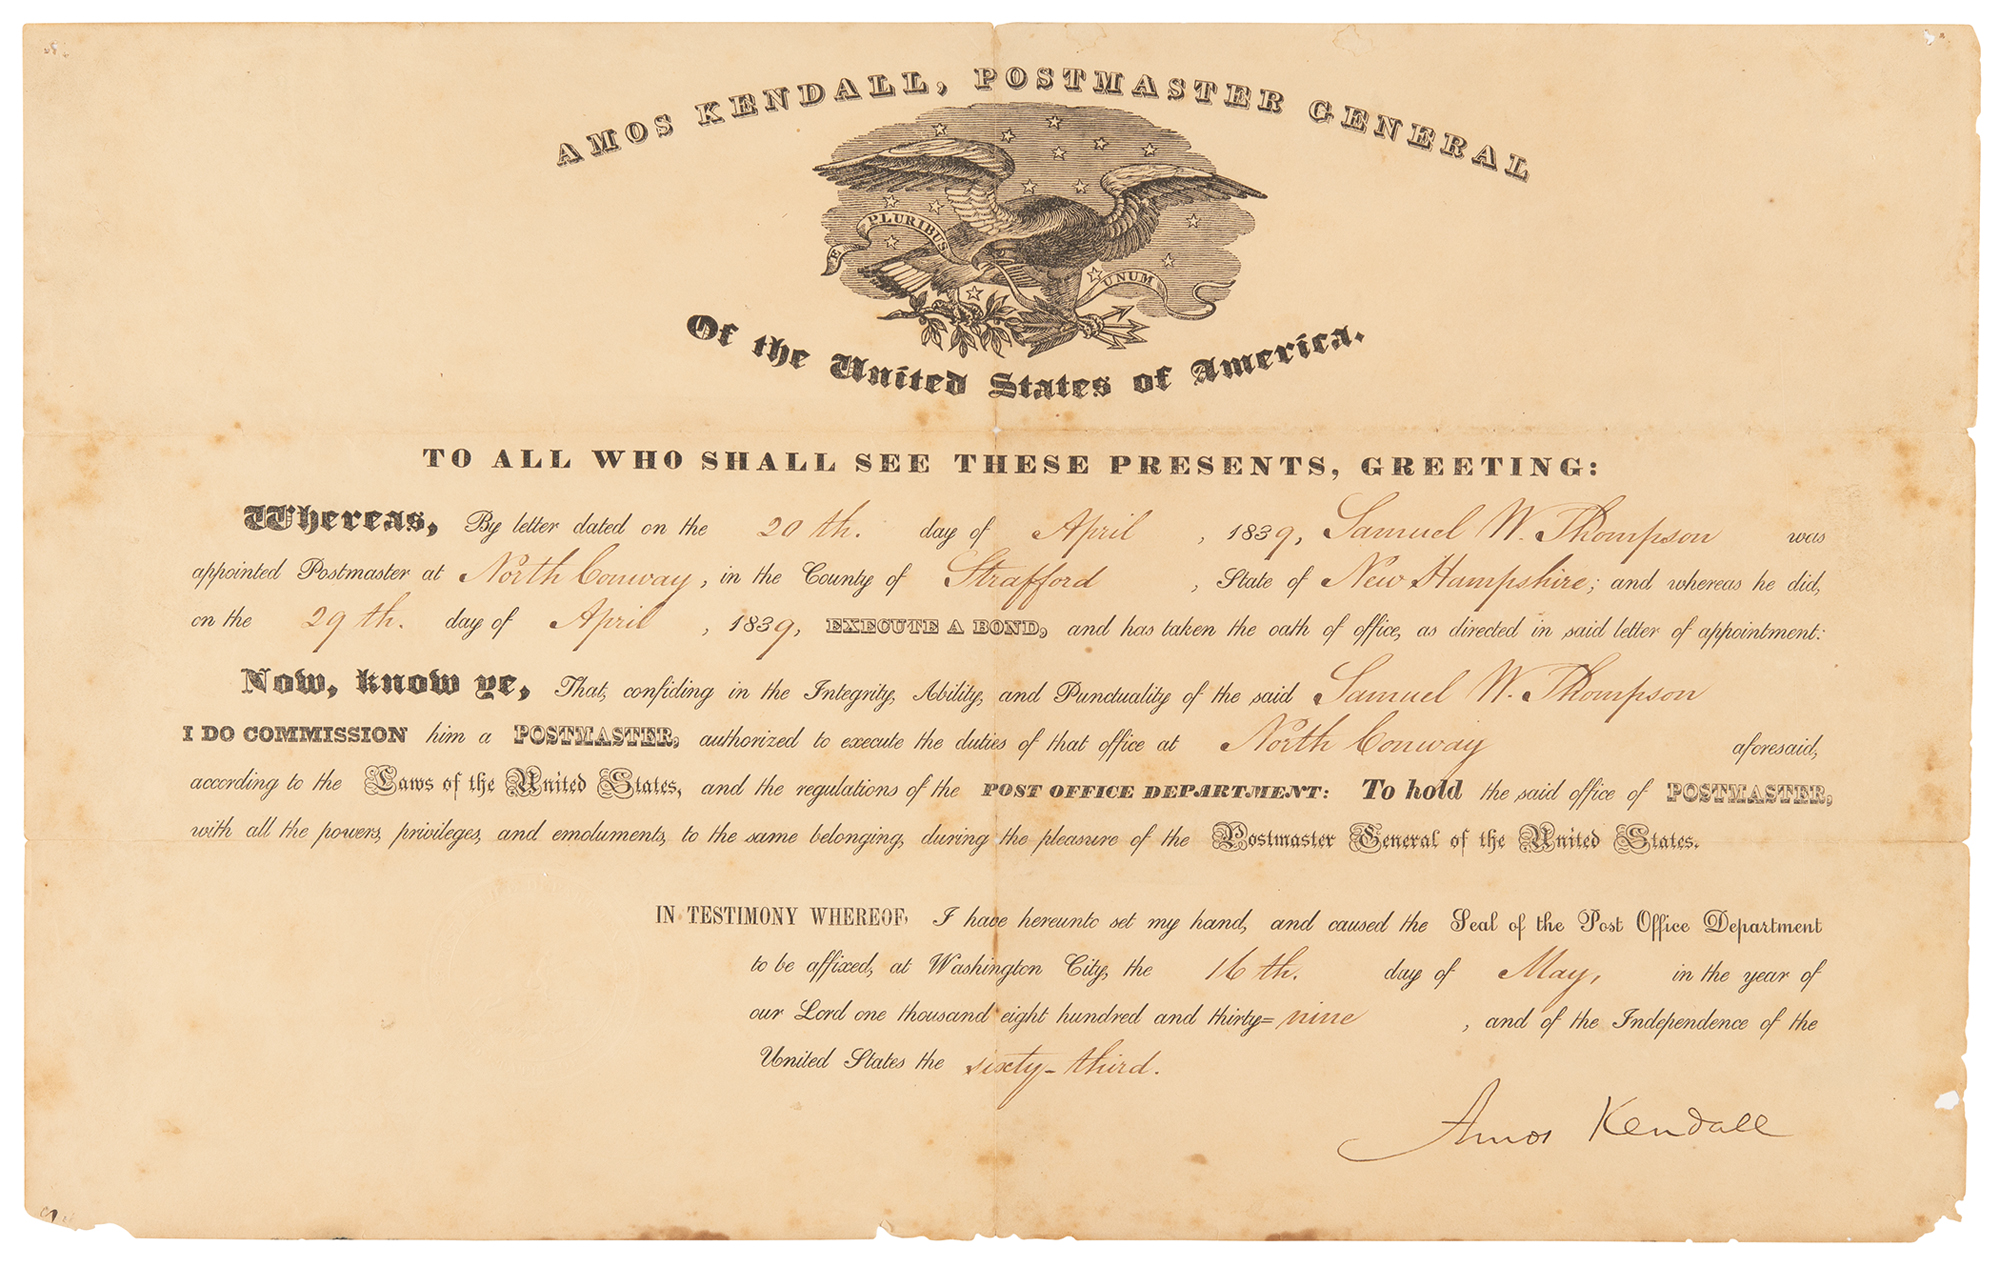 AMOS KENDALL, POSTMASTER GENERAL
E PLURIBUS UNUM
Of the United States of America.
TO ALL WHO SHALL SEE THESE PRESENTS, GREETING:
Whereas, By letter dated on the 20th. day of April, 1839, Samuel W. Thompson was
appointed Postmaster at North Conway, in the County of Strafford, State of New Hampshire; and whereas he did,
on the 29th. day of April, 1839, EXECUTE A BOND, and has taken the oath of office, as directed in said letter of appointment:
Now, know ye, That, confiding in the Integrity, Ability, and Punctuality of the said Samuel W. Thompson
I DO COMMISSION him a POSTMASTER, authorized to execute the duties of that office at North Conway aforesaid,
according to the Laws of the United States, and the regulations of the POST OFFICE DEPARTMENT: To hold the said office of POSTMASTER,
with all the powers, privileges, and emoluments, to the same belonging, during the pleasure of the Postmaster General of the United States.
IN TESTIMONY WHEREOF, I have hereunto set my hand, and caused the Seal of the Post Office Department
to be affixed, at Washington City, the 16th. day of May, in the year of
our Lord one thousand eight hundred and thirty=nine, and of the Independence of the
United States the sixty-third.
Amos Kendall